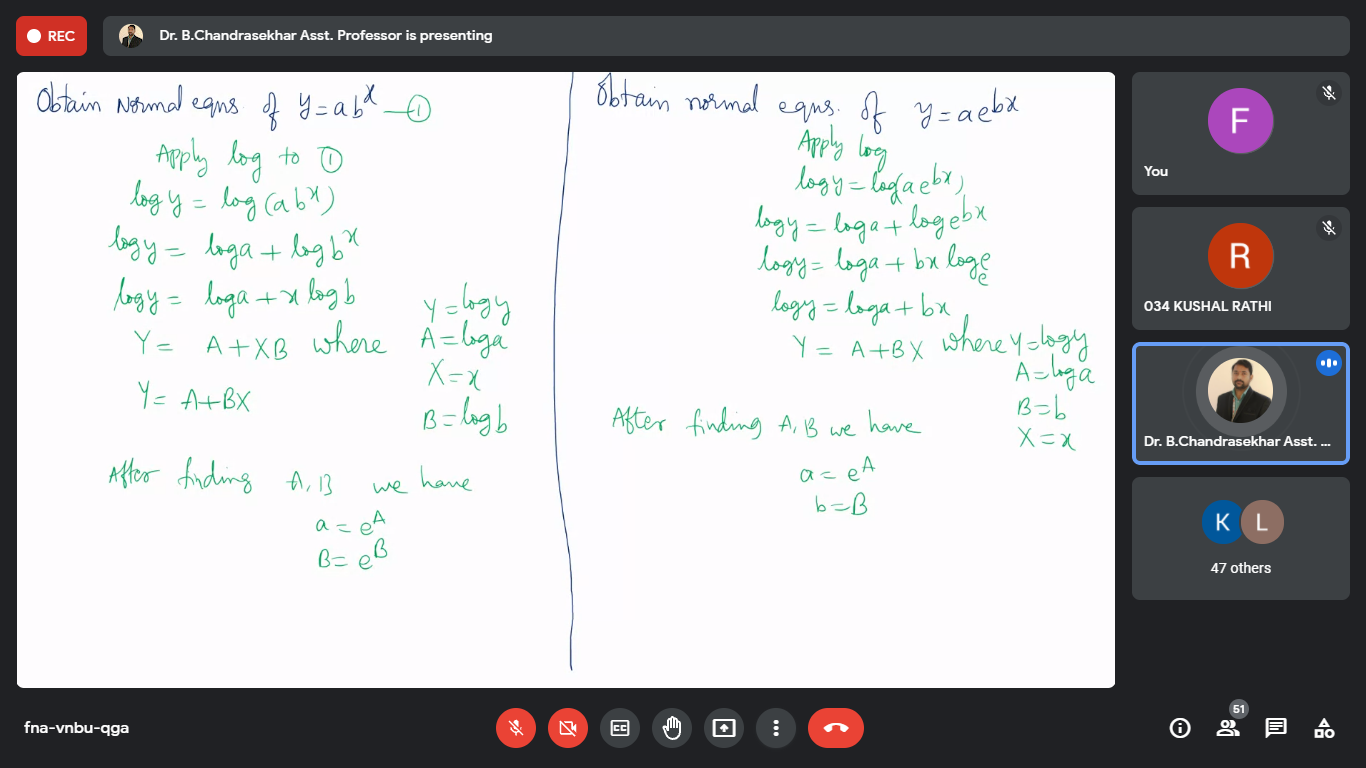 REC
Dr. B.Chandrasekhar Asst. Professor is presenting
Obtain Normal eqns. of y = ab^x —①
Apply log to ①
log y = log (ab^x)
log y = log a + log b^x
log y = log a + x log b
Y = A + XB where
Y = log y
A = log a
X = x
B = log b
Y = A + BX
After finding A, B we have
a = e^A
B = e^B
Obtain normal eqns. of y = ae^bx
Apply log
log y = log(ae^bx)
log y = log a + log e^bx
log y = log a + bx log_e e
log y = log a + bx
Y = A + BX where Y = log y
A = log a
B = b
X = x
After finding A, B we have
a = e^A
b = B
F
You
R
034 KUSHAL RATHI
Dr. B.Chandrasekhar Asst. ...
K L
47 others
fna-vnbu-qga
CC
51